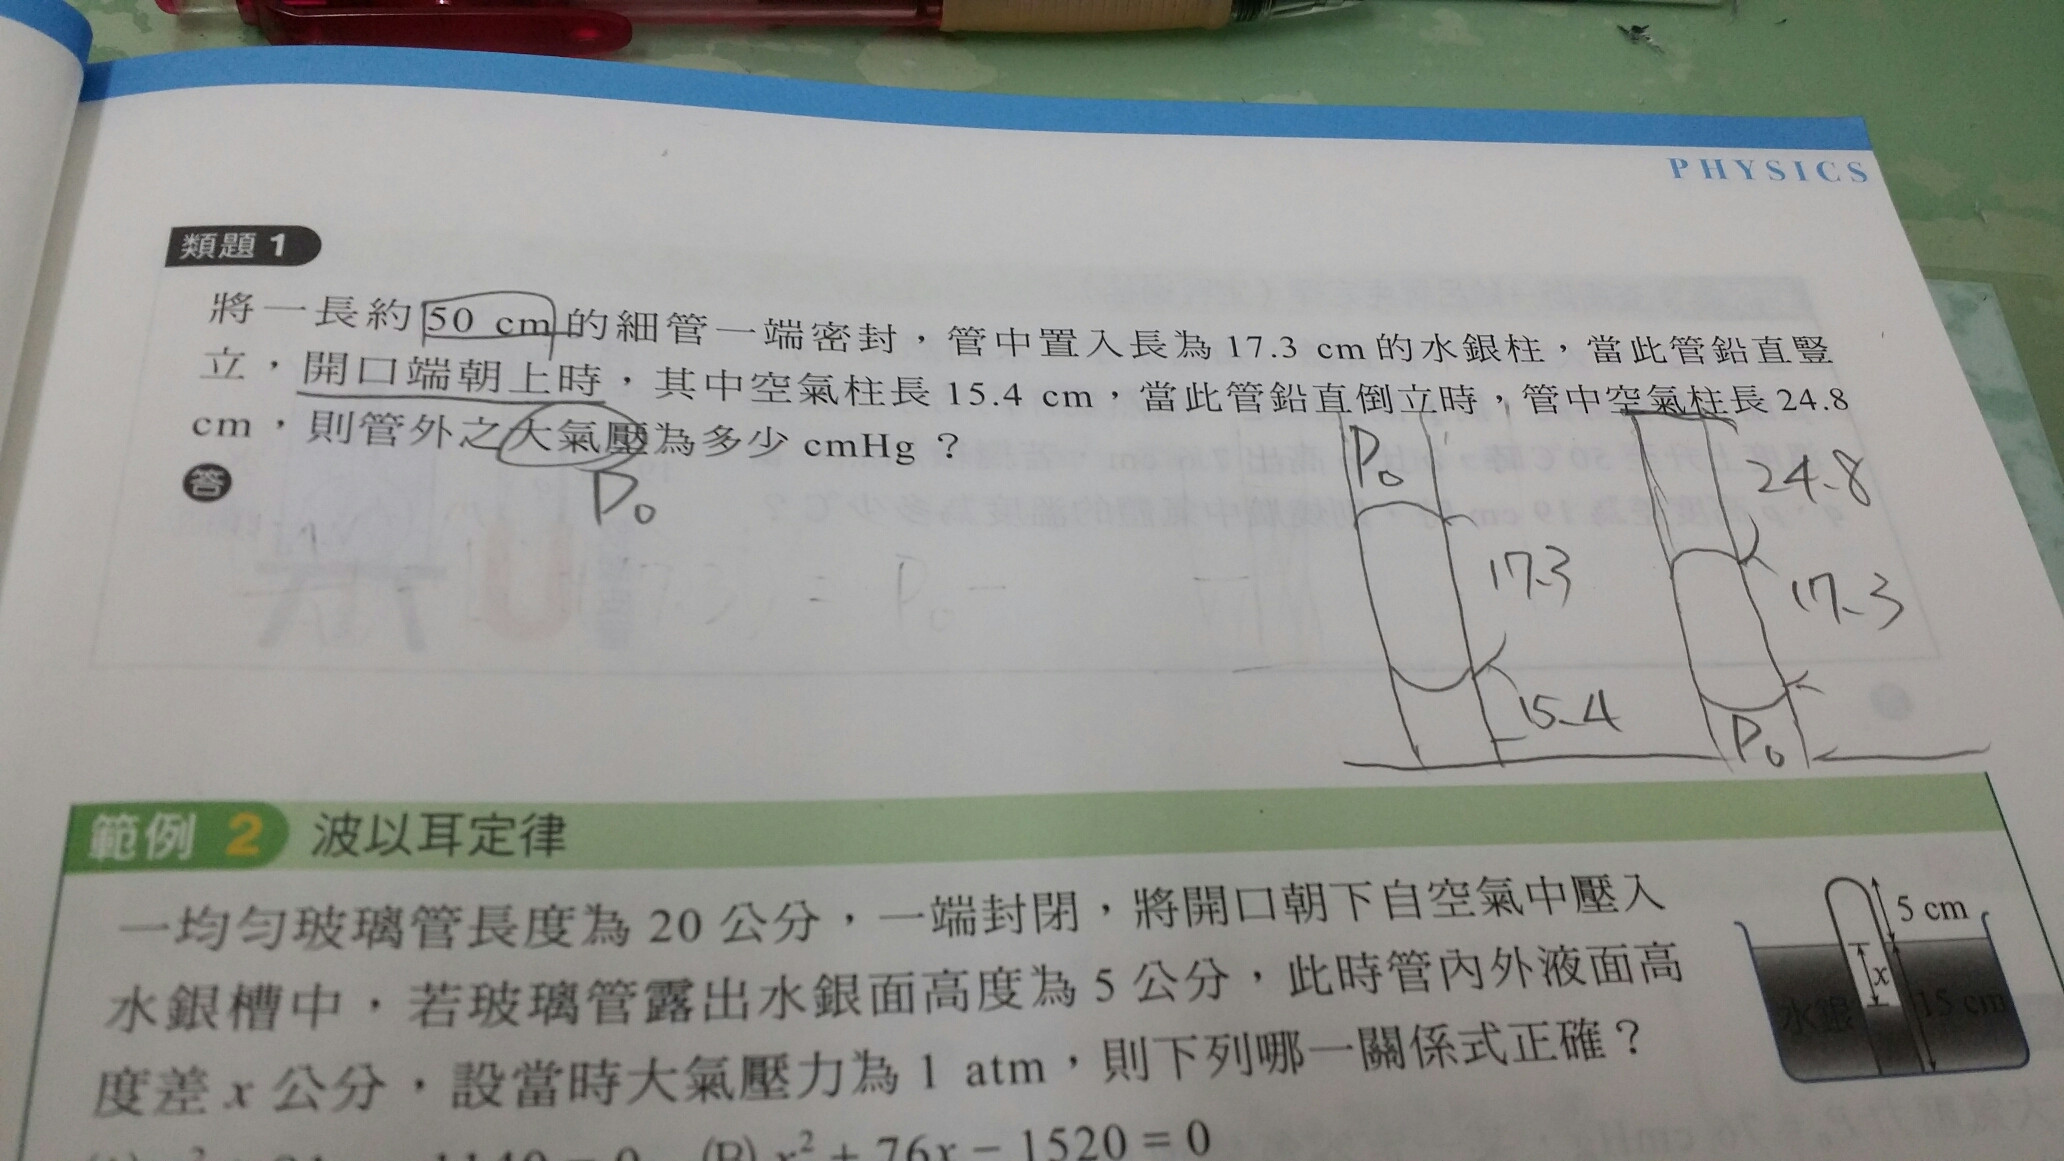 PHYSICS
類題 1
將一長約 50 cm 的細管一端密封，管中置入長為 17.3 cm 的水銀柱，當此管鉛直豎
立，開口端朝上時，其中空氣柱長 15.4 cm，當此管鉛直倒立時，管中空氣柱長 24.8
cm，則管外之大氣壓為多少 cmHg？
答
P₀
P₀
17.3
15.4
24.8
17.3
P₀
範例 2 波以耳定律
一均勻玻璃管長度為 20 公分，一端封閉，將開口朝下自空氣中壓入
水銀槽中，若玻璃管露出水銀面高度為 5 公分，此時管內外液面高
度差 x 公分，設當時大氣壓力為 1 atm，則下列哪一關係式正確？
(B) x² + 76x − 1520 = 0
5 cm
x
水銀
15 cm